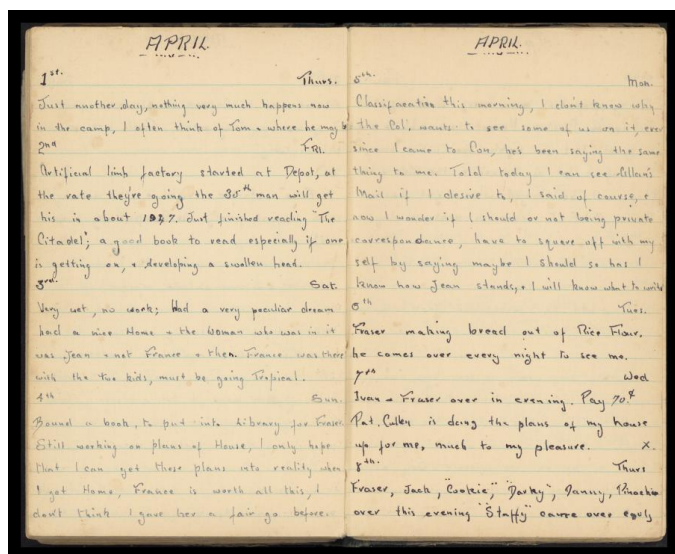 APRIL.
1st. Thurs.
Just another day, nothing very much happens now
in the camp, I often think of Tom + where he may b
2nd FRI.
Artificial limb factory started at Depot, at
the rate they're going the 35th man will get
his in about 1927. Just finished reading "The
Citadel", a good book to read especially if one
is getting on, + developing a swollen head.
3rd. Sat.
Very wet, no work; Had a very peculiar dream
had a nice Home + the Woman who was in it
was Jean + not France + then France was there
with the two kids, must be going Tropical.
4th Sun.
Bound a book, to put into Library for Fraser.
Still working on plans of House, I only hope
that I can get these plans into reality when
I get Home, France is worth all this, I
don't think I gave her a fair go before.
APRIL.
5th. Mon.
Classifacation this morning, I don't know why
the Col. wants to see some of us on it, ever
since I came to Con, he's been saying the same
thing to me. Told today I can see
Mail if I desire to, I said of course, +
now I wonder if I should or not being private
correspondance, have to square off with my
self by saying maybe I should so has I
know how Jean stands, + I will know what to write
6th Tues.
Fraser making bread out of Rice Flour.
he comes over every night to see me.
7th Wed
Ivan + Fraser over in evening. Pay 70¢
Pat. Culley is doing the plans of my house
up for me, much to my pleasure. X.
8th. Thurs
Fraser, Jack, "Cookie," "Darky", Danny, Pinochio
over this evening "Staffy" came over